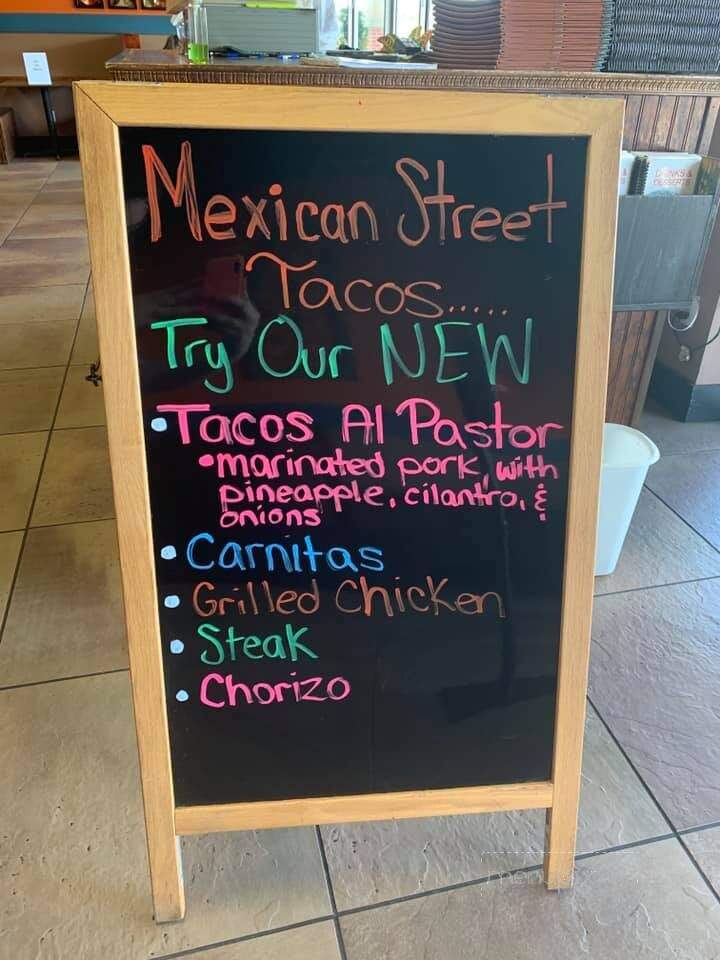 Mexican Street
Tacos.....
Try Our NEW
• Tacos Al Pastor
• marinated pork, with
pineapple, cilantro, &
onions
• Carnitas
• Grilled Chicken
• Steak
• Chorizo
DRINKS &
DESSERTS